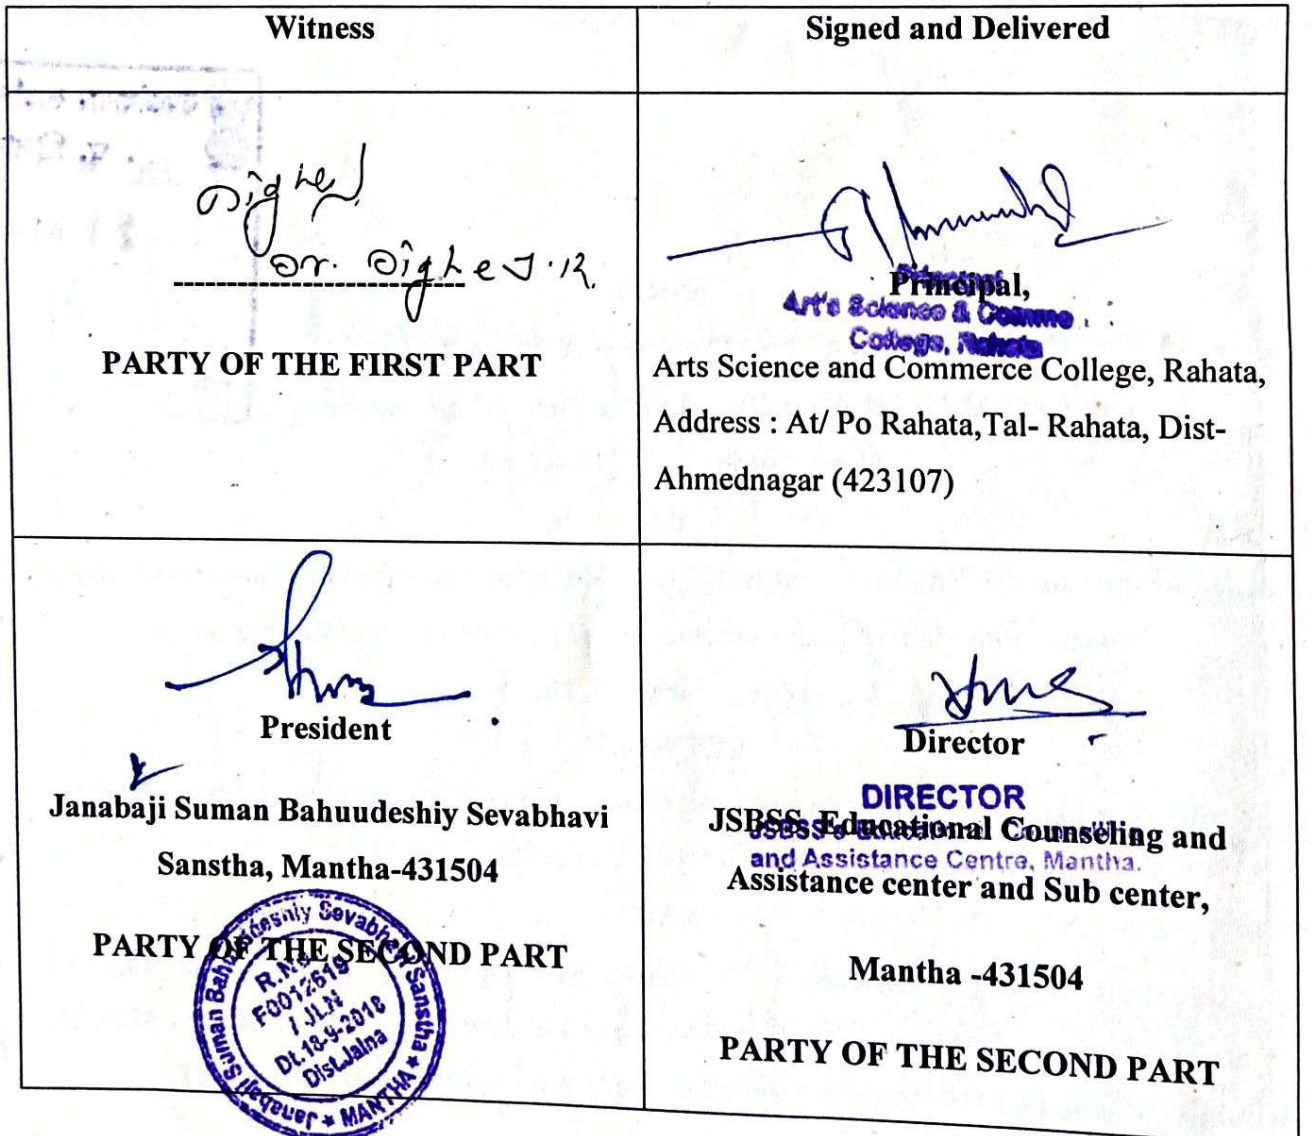 Witness
Signed and Delivered
Dighe
Dr. Dighe J.R.
PARTY OF THE FIRST PART
Principal,
Principal
Art's Science & Comme
College, Rahata
Arts Science and Commerce College, Rahata,
Address : At/ Po Rahata,Tal- Rahata, Dist-
Ahmednagar (423107)
President
Janabaji Suman Bahuudeshiy Sevabhavi
Sanstha, Mantha-431504
PARTY OF THE SECOND PART
Janabaji Suman Bahuudeshiy Sevabhavi Sanstha ★ MANTHA ★
R.No.
F0012619
/ JLN
Dt.18-9-2018
Dist.Jalna
Director
DIRECTOR
JSBSS's Educational Counselling
and Assistance Centre, Mantha.
JSBSS, Educational Counseling and
Assistance center and Sub center,
Mantha -431504
PARTY OF THE SECOND PART